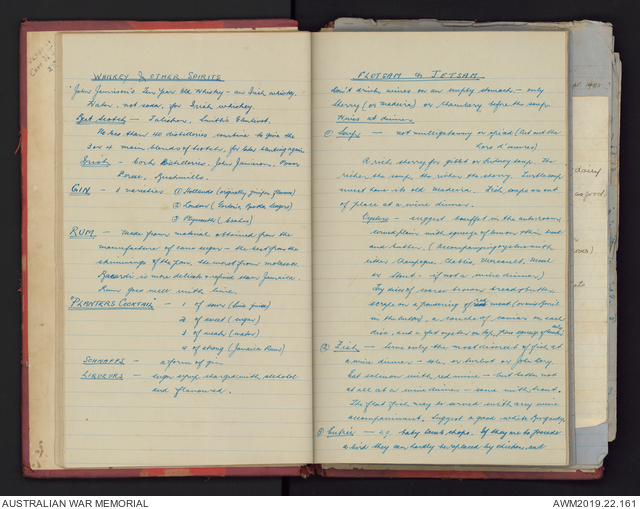 WHISKEY & OTHER SPIRITS
"John Jamieson's Ten Year Old Whisky - an Irish whisky.
Water, not soda, for Irish whiskey.
Best Scotch - Talisker, Smith's Glenlivet.
No less than 40 distilleries combine to give the
3 or 4 main blends of Scotch, for later blending again
Irish - Cork Distilleries, John Jamieson, Power
Bushmills.
GIN - 3 varieties ① Hollands (originally juniper flavour)
② London (Gordons, Booths, Seagers)
③ Plymouth (Coates)
RUM - Made from material obtained from the
manufacture of cane sugar - the best from the
skimmings of the pan, the worst from molasses.
Bacardi is more delicate & refined than Jamaica.
Rum goes well with lime.
"PLANTERS COCKTAIL" - 1 of sour (lime juice)
2 of sweet (sugar)
3 of weak (water)
4 of strong (Jamaica Rum)
SCHNAPPS - a form of gin
LIQUEURS - sugar syrup charged with alcohol
and flavoured.
FLOTSAM & JETSAM
Don't drink wines on an empty stomach - only
Sherry (or Madeira) or Chambery before the soup.
Wines at dinner
① Soup - not mulligatawny or spiced (Cut out the
Hors d'oeuvres)
A rich sherry for giblet or kidney soup. The
richer the soup, the richer the sherry. Turtle soup
must have its old Madeira. Fish soups are out
of place at a wine dinner.
Oysters - suggest buffet in the anteroom
with brown bread
and butter. (Accompanying oysters with
either Champagne, Chablis, Meursault, Mosel
or Stout - if not a wine dinner)
Try discs of brown bread & butter
scrape on a powdering of
in the butter, a touch of caviar on each
disc, and a fat oyster on top,
② Fish - Serve only the most discreet of fish at
a wine dinner - sole, or turbot or John Dory.
Eat salmon with red wine - but better not
at all at a wine dinner - same with trout.
The flat fish may be served with any wine
accompaniment. Suggest a good white Burgundy.
③ Entrée - e.g. baby lamb chops. If they are to precede
a bird they can hardly be replaced by chicken, and
dairy
good.
AUSTRALIAN WAR MEMORIAL
AWM2019.22.161